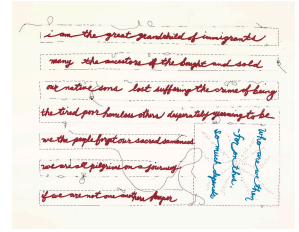 i am the great grandchild of immigrants
many the ancestors of the bought and sold
our native sons lost suffering the crime of being
the tired poor homeless others desperately yearning to be
we the people forgot our sacred
we are all pilgrims on a journey
if we are not one another's keeper